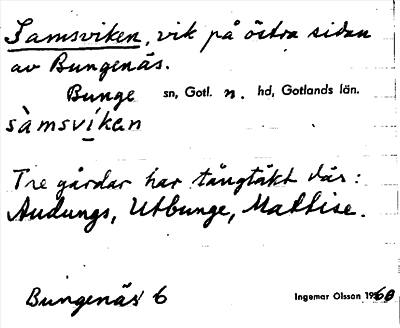 Samsviken, vik på östra sidan
av Bungenäs.
Bunge sn, Gotl. n. hd, Gotlands län.
sàmsvíkan
Tre gårdar har tångtäkt där:
Audungs, Utbunge, Mattise.
Bungenäs 6
Ingemar Olsson 1960